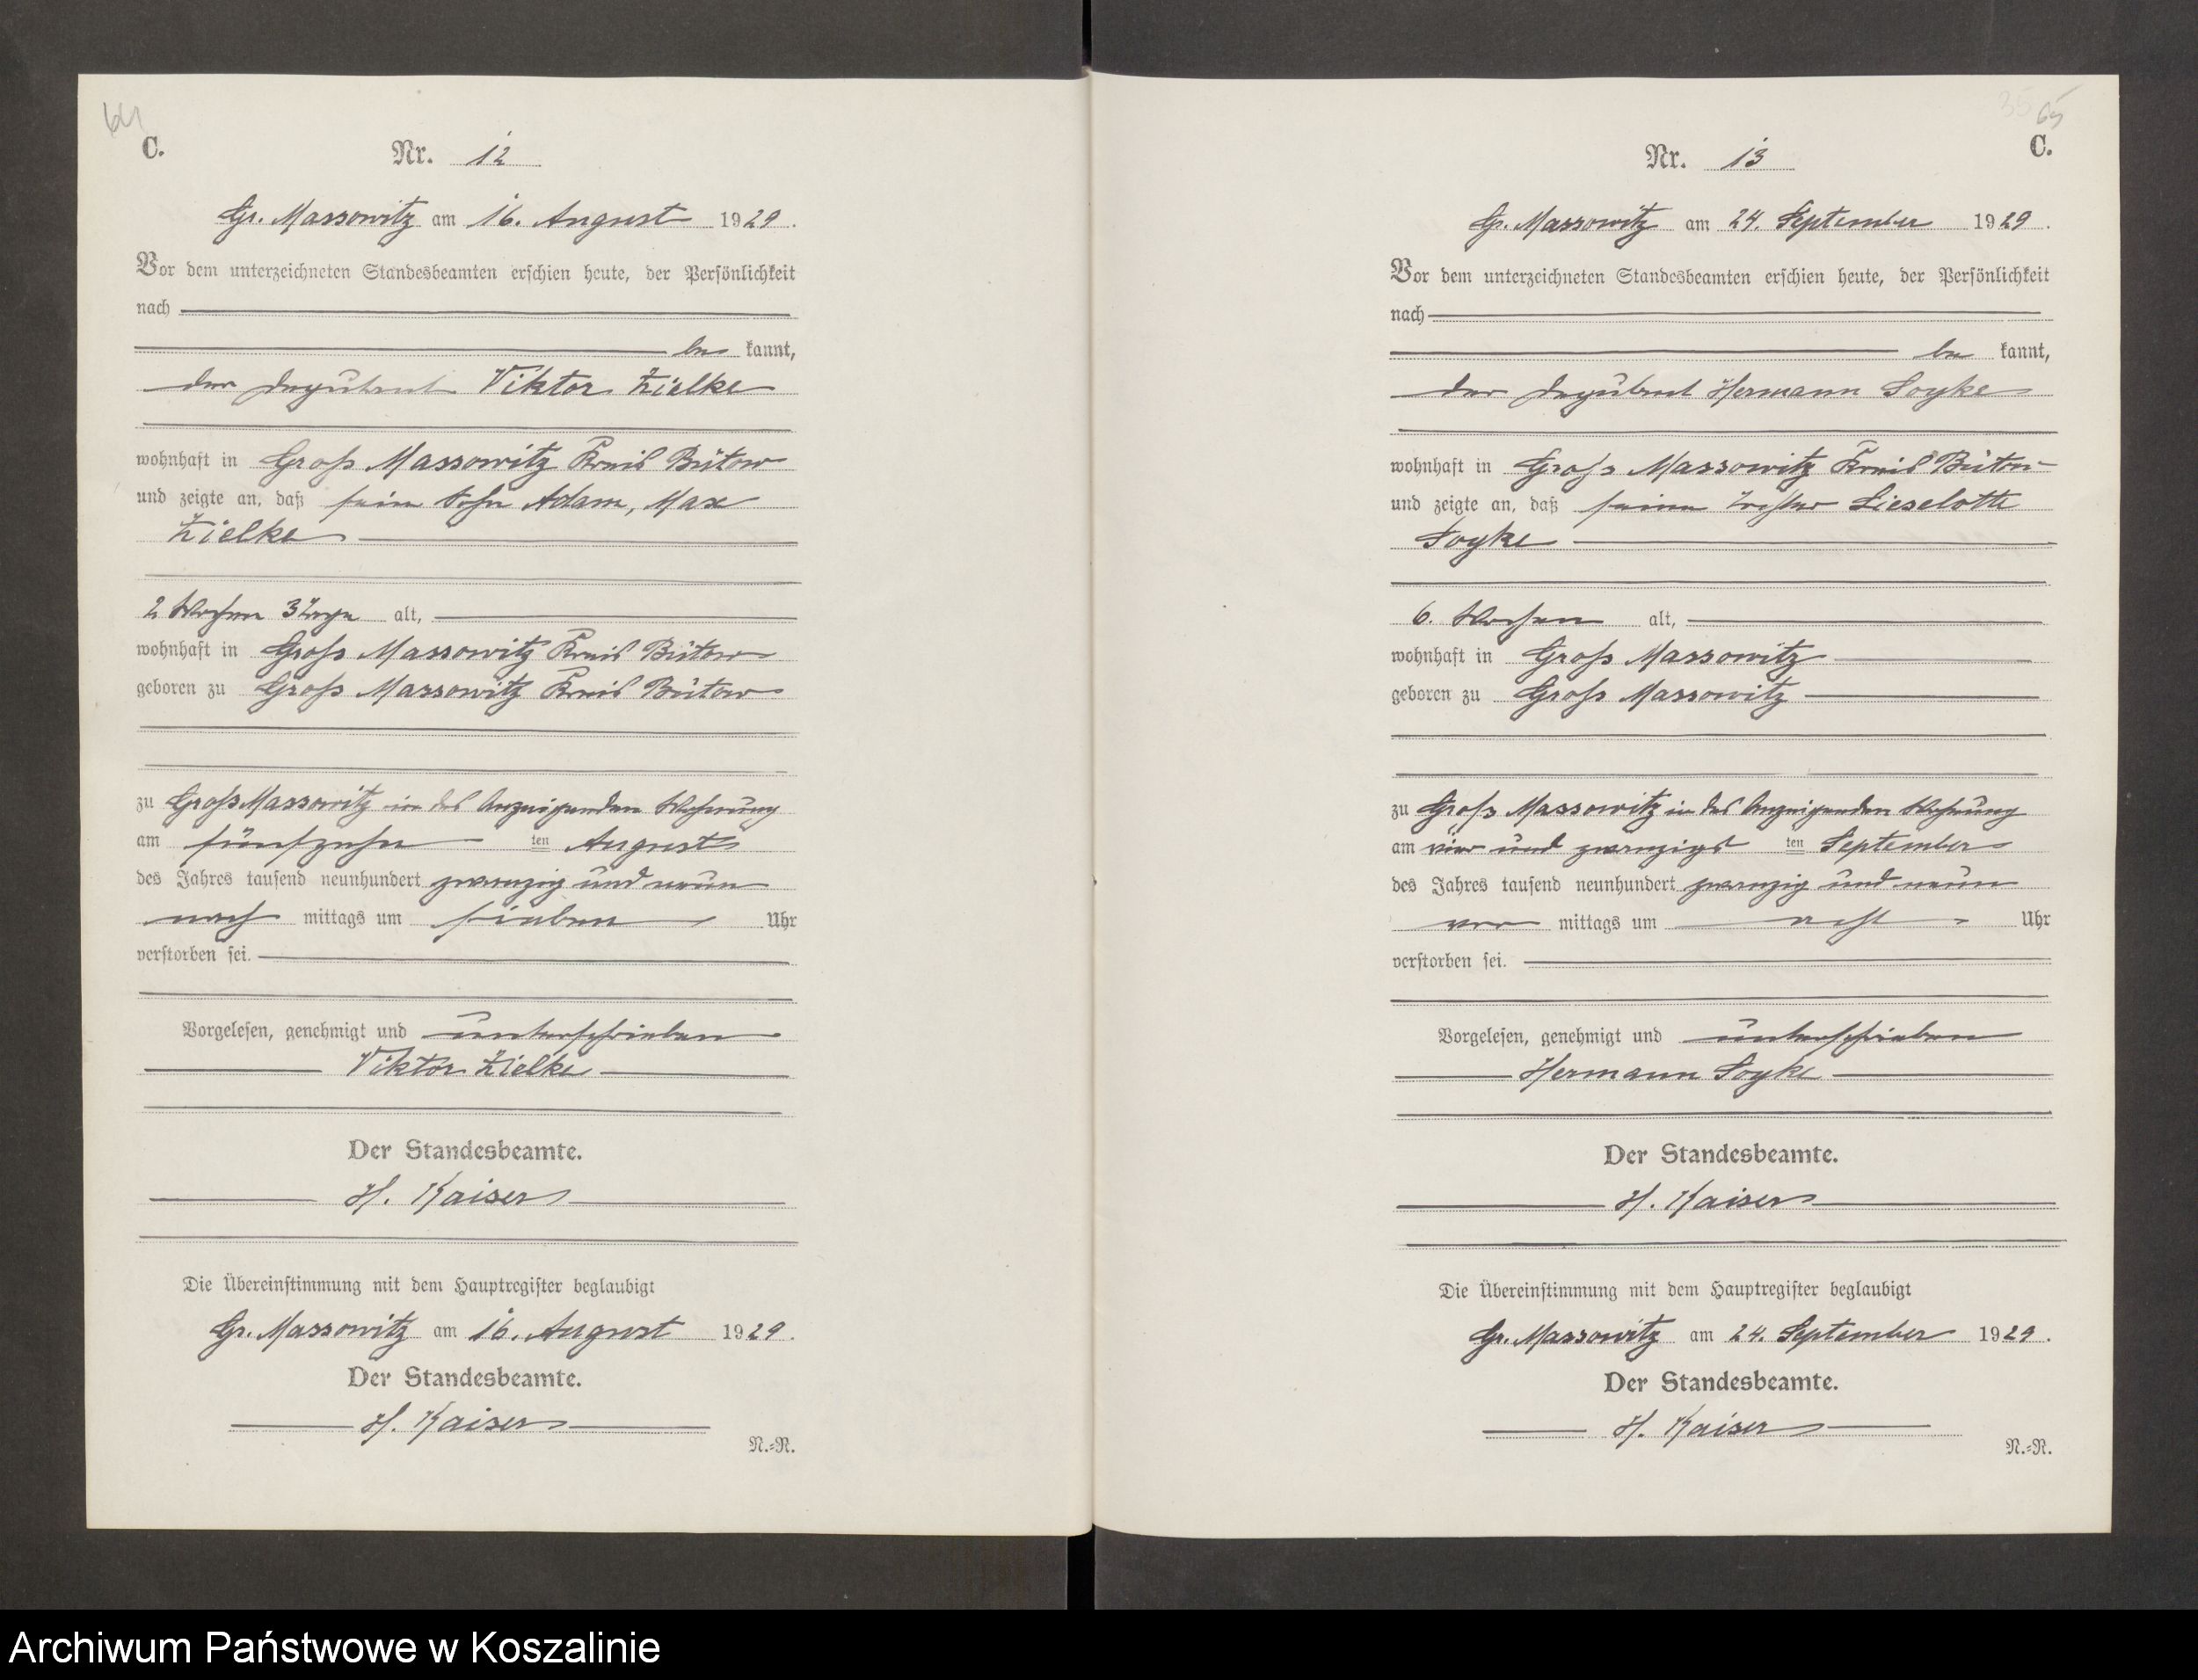 64
C.
Nr. 12
Gr. Massowitz am 16. August 1929.
Vor dem unterzeichneten Standesbeamten erschien heute, der Persönlichkeit
nach
be kannt,
der Deputant Viktor Zielke
wohnhaft in Groß Massowitz Kreis Bütow
und zeigte an, daß sein Sohn Adam, Max
Zielke
2 Wochen 3 Tage alt,
wohnhaft in Groß Massowitz Kreis Bütow
geboren zu Groß Massowitz Kreis Bütow
zu Groß Massowitz in des Anzeigenden Wohnung
am fünfzehn ten August
des Jahres tausend neunhundert zwanzig und neun
nach mittags um sieben Uhr
verstorben sei.
Vorgelesen, genehmigt und unterschrieben
Viktor Zielke
Der Standesbeamte.
H. Kaiser
Die Übereinstimmung mit dem Hauptregister beglaubigt
Gr. Massowitz am 16. August 1929.
Der Standesbeamte.
H. Kaiser
N.=R.
35 65
C.
Nr. 13
Gr. Massowitz am 24. September 1929.
Vor dem unterzeichneten Standesbeamten erschien heute, der Persönlichkeit
nach
be kannt,
der Deputant Hermann Soyke
wohnhaft in Groß Massowitz Kreis Bütow
und zeigte an, daß seine Tochter Lieselotte
Soyke
6. Wochen alt,
wohnhaft in Groß Massowitz
geboren zu Groß Massowitz
zu Groß Massowitz in des Anzeigenden Wohnung
am vier und zwanzigs ten September
des Jahres tausend neunhundert zwanzig und neun
vor mittags um acht Uhr
verstorben sei.
Vorgelesen, genehmigt und unterschrieben
Hermann Soyke
Der Standesbeamte.
H. Kaiser
Die Übereinstimmung mit dem Hauptregister beglaubigt
Gr. Massowitz am 24. September 1929.
Der Standesbeamte.
H. Kaiser
N.=R.
Archiwum Państwowe w Koszalinie